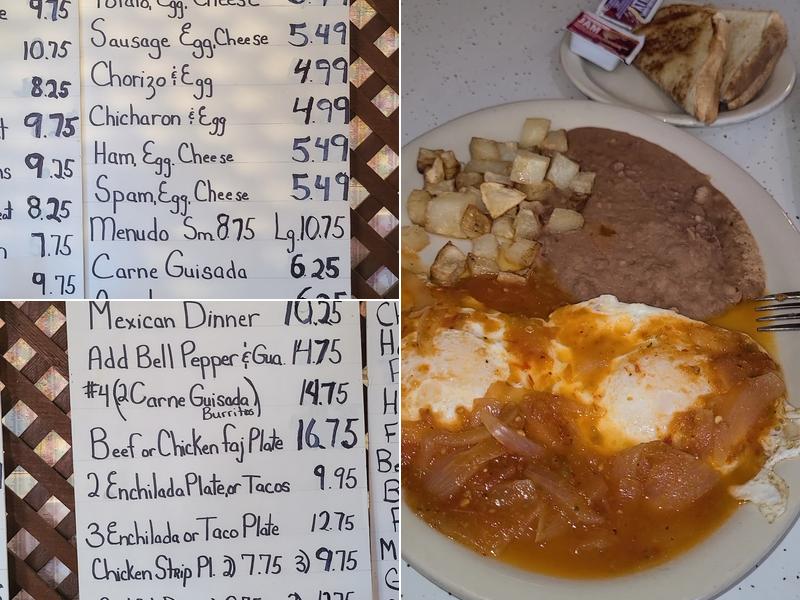 9.75
10.75
8.25
9.75
9.25
8.25
7.75
9.75
Potato, Egg, Cheese
Sausage Egg, Cheese 5.49
Chorizo & Egg 4.99
Chicharon & Egg 4.99
Ham, Egg, Cheese 5.49
Spam, Egg, Cheese 5.49
Menudo Sm. 8.75 Lg. 10.75
Carne Guisada 6.25
6.25
Mexican Dinner 10.25
Add Bell Pepper & Gua. 14.75
#4 (2 Carne Guisada Burritos) 14.75
Beef or Chicken faj Plate 16.75
2 Enchilada Plate, or Tacos 9.95
3 Enchilada or Taco Plate 12.75
Chicken Strip Pl. 2) 7.75 3) 9.75
JAM